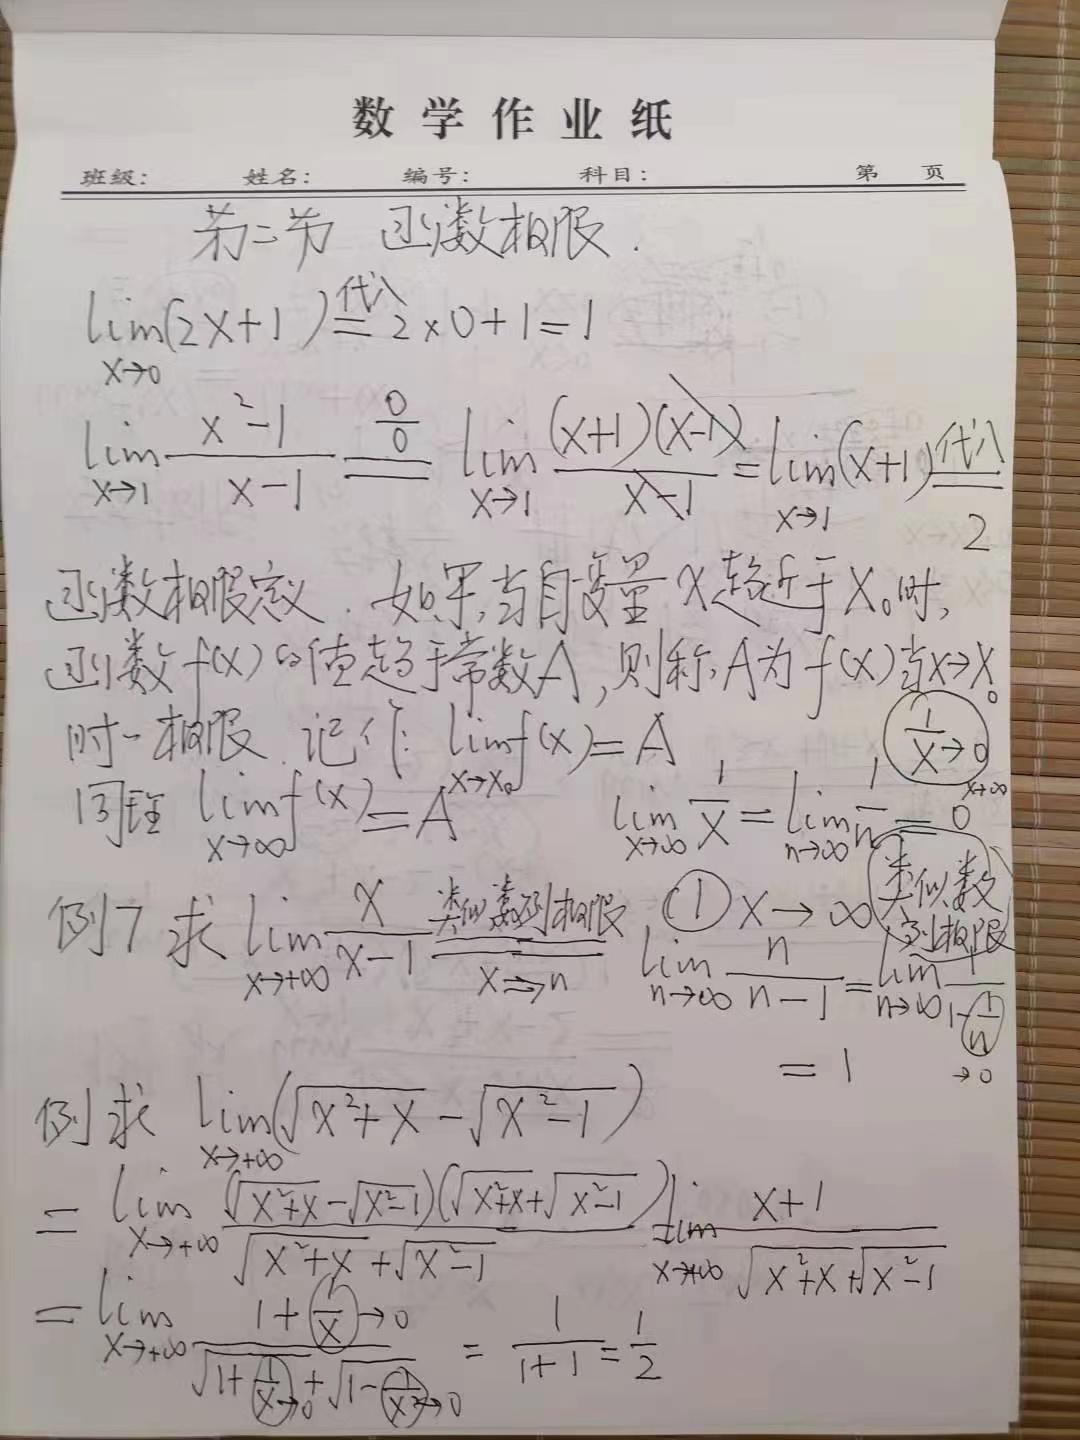 数学作业纸
班级: 姓名: 编号: 科目: 第 页
第二节 函数极限.
lim_{x→0}(2x+1) \overset{代入}{=} 2×0+1=1
lim_{x→1} \frac{x²-1}{x-1} \overset{\frac{0}{0}}{=} lim_{x→1} \frac{(x+1)(x-1)}{x-1} = lim_{x→1}(x+1) \overset{代入}{=} 2
函数极限定义. 如果,当自变量x趋近于x₀时,
函数f(x)的值趋于常数A,则称,A为f(x)当x→x₀
时一极限. 记作: lim_{x→x₀} f(x)=A \frac{1}{x}→0 x→∞
同理 lim_{x→∞} f(x)=A lim_{x→∞} \frac{1}{x} = lim_{n→∞} \frac{1}{n} = 0
例7 求 lim_{x→+∞} \frac{x}{x-1} \overset{类似数列极限}{\underset{x⇒n}{=}} ① x→∞ 类似数列极限
lim_{n→∞} \frac{n}{n-1} = lim_{n→∞} \frac{1}{1-\frac{1}{n}} →0
=1
例 求 lim_{x→+∞}(\sqrt{x²+x}-\sqrt{x²-1})
= lim_{x→+∞} \frac{(\sqrt{x²+x}-\sqrt{x²-1})(\sqrt{x²+x}+\sqrt{x²-1})}{\sqrt{x²+x}+\sqrt{x²-1}} = lim_{x→+∞} \frac{x+1}{\sqrt{x²+x}+\sqrt{x²-1}}
= lim_{x→+∞} \frac{1+\frac{1}{x}→0}{\sqrt{1+\frac{1}{x}→0}+\sqrt{1-\frac{1}{x²}→0}} = \frac{1}{1+1} = \frac{1}{2}